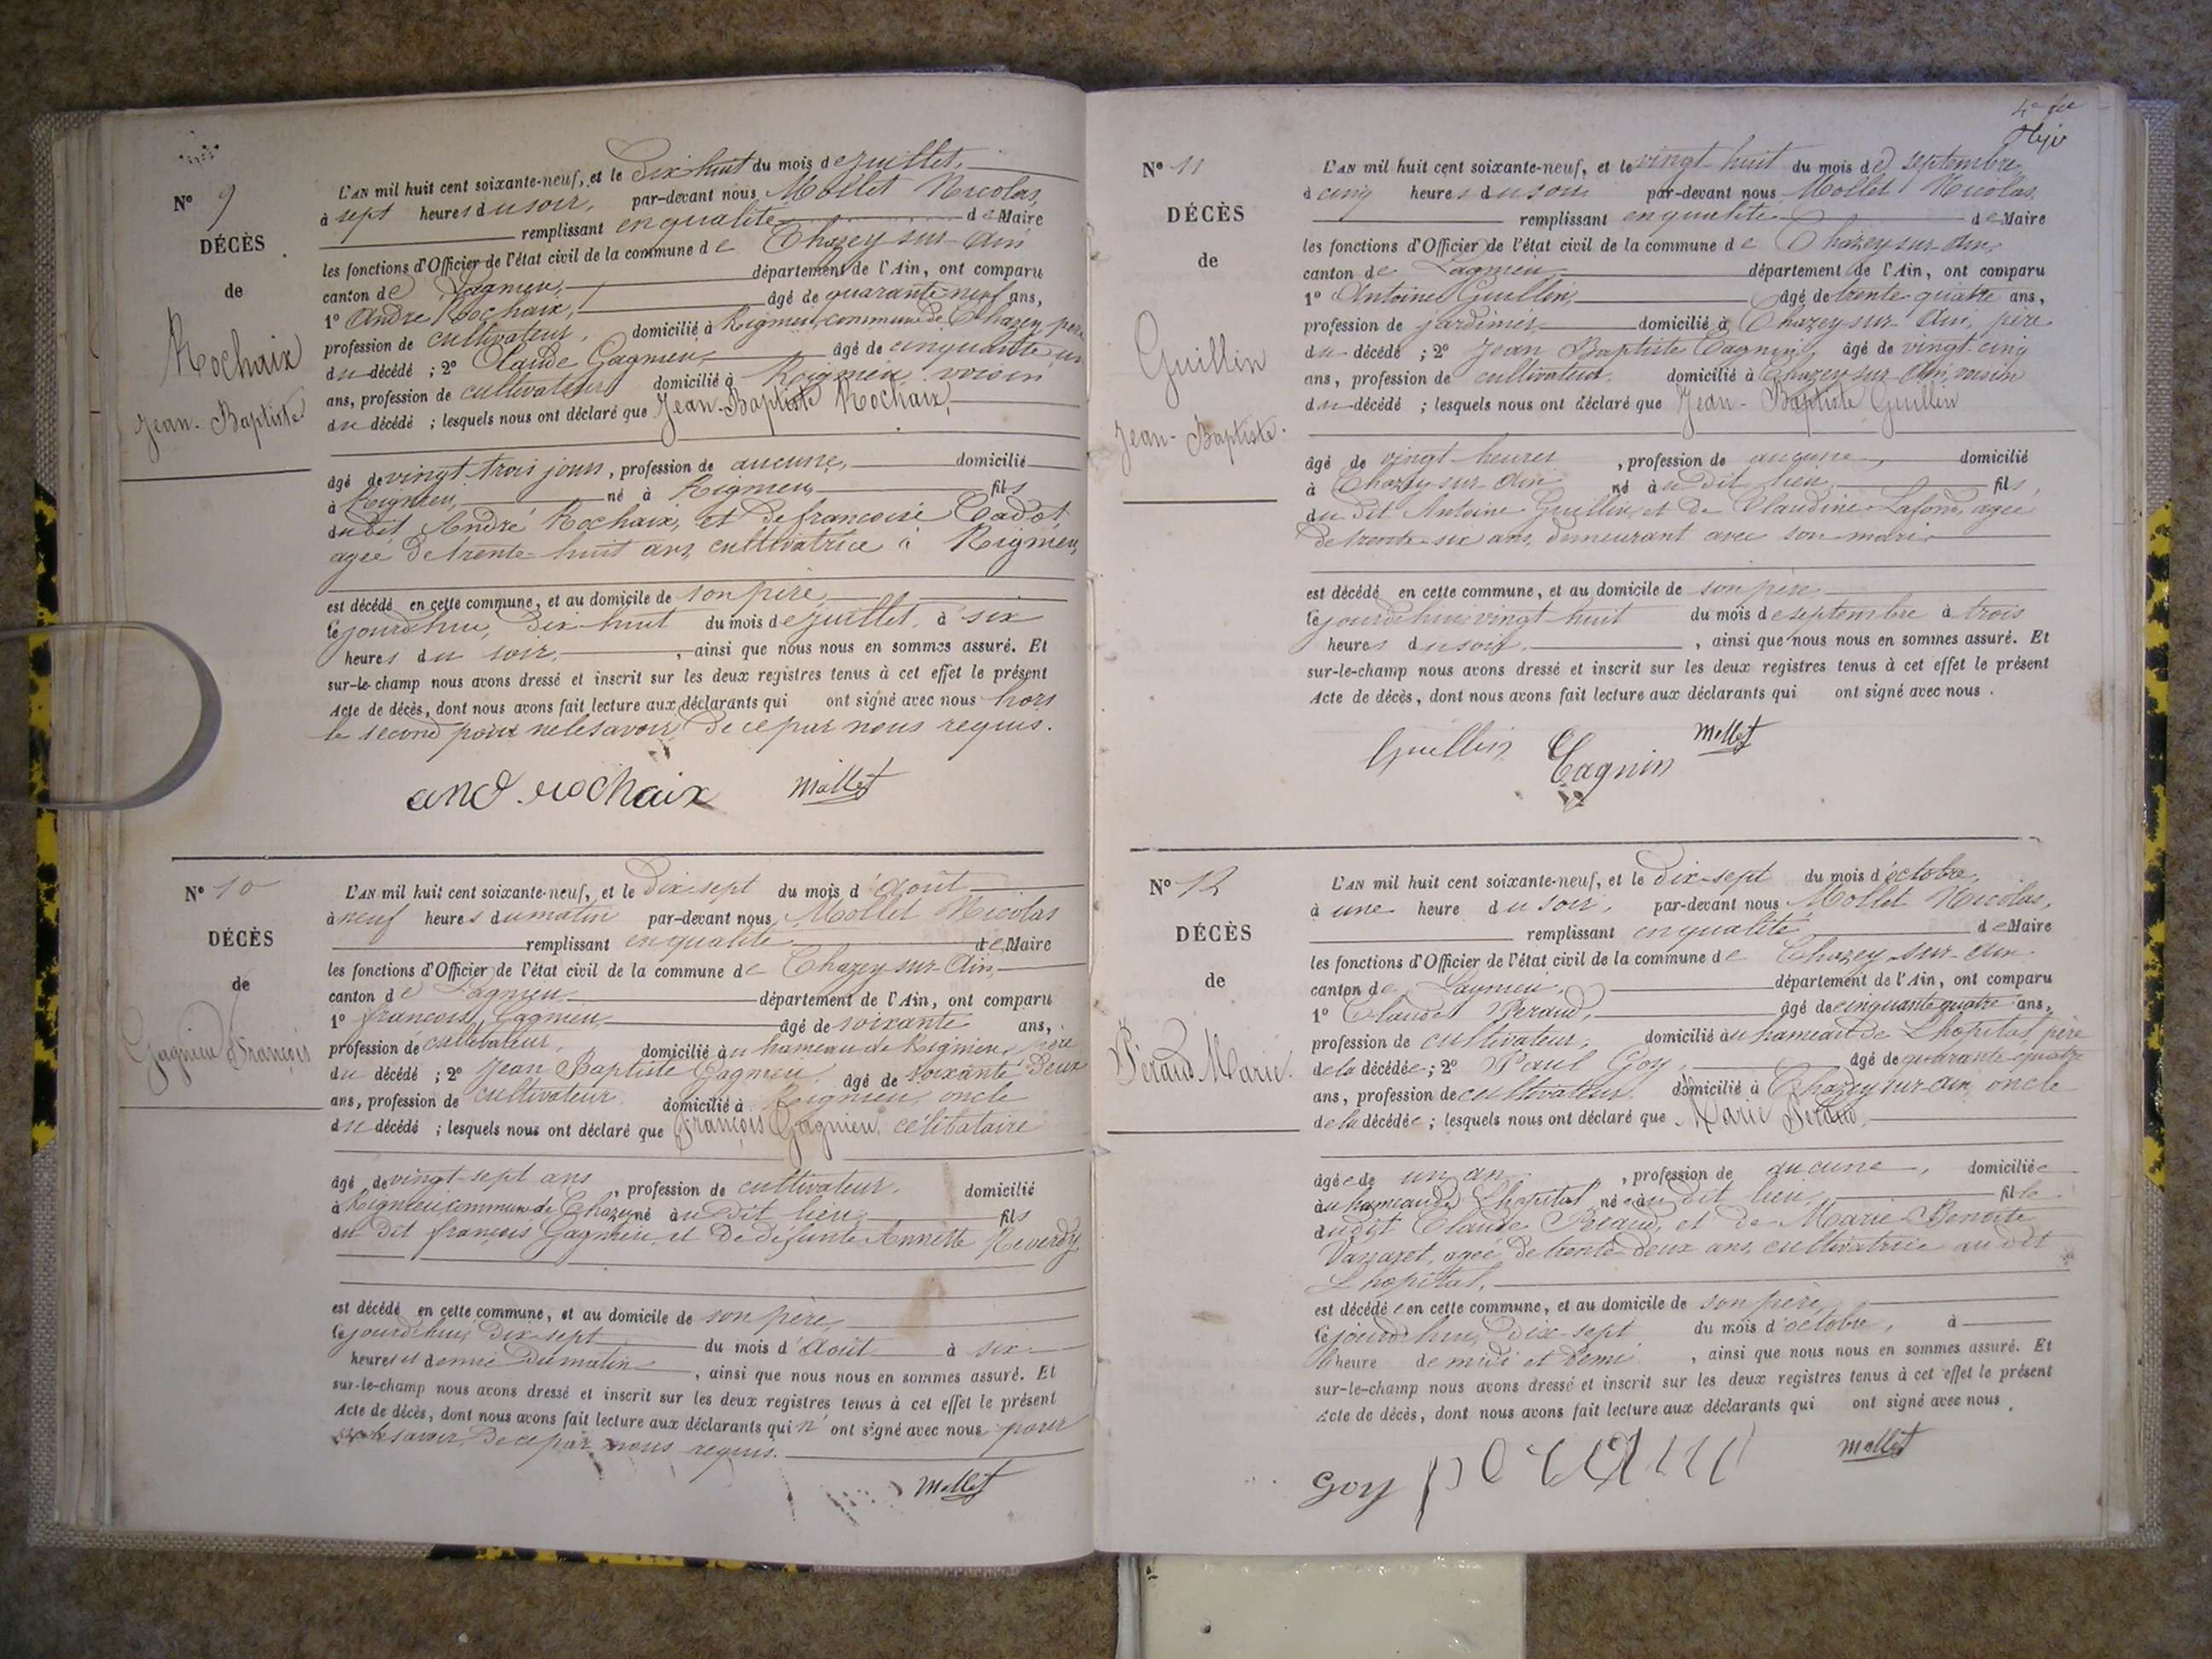 N° 9
DÉCÈS
de
Rochaix
Jean-Baptiste
L'AN mil huit cent soixante-neuf, et le Dix huit du mois de juillet,
à sept heures du soir, par-devant nous Mollet Nicolas,
remplissant en qualité de Maire
les fonctions d'Officier de l'état civil de la commune de Chazey-sur-Ain
canton de Lagnieu, département de l'Ain, ont comparu
1° André Rochaix, âgé de quarante-neuf ans,
profession de cultivateur, domicilié à Rignieu, commune de Chazey, père
du décédé ; 2° Claude Gagnieu, âgé de cinquante un
ans, profession de cultivateur domicilié à Rignieu, voisin
du décédé ; lesquels nous ont déclaré que Jean-Baptiste Rochaix,
âgé de vingt trois jours, profession de aucune, domicilié
à Rignieu, né à Rignieu, fils
du dit André Rochaix, et de françoise Cadot,
agée de trente-huit ans, cultivatrice à Rignieu,
est décédé en cette commune, et au domicile de son père,
le jourd'hui, dix-huit du mois de juillet, à six
heures du soir, ainsi que nous nous en sommes assuré. Et
sur-le-champ nous avons dressé et inscrit sur les deux registres tenus à cet effet le présent
Acte de décès, dont nous avons fait lecture aux déclarants qui ont signé avec nous hors
le second pour ne le savoir, de ce par nous requis.
and rochaix Mollet
N° 10
DÉCÈS
de
Gagnieu François
L'AN mil huit cent soixante-neuf, et le Dix-sept du mois d'Août
à neuf heures du matin par-devant nous Mollet Nicolas
remplissant en qualité de Maire
les fonctions d'Officier de l'état civil de la commune de Chazey-sur-Ain,
canton de Lagnieu département de l'Ain, ont comparu
1° françois Gagnieu, âgé de soixante ans,
profession de cultivateur, domicilié au hameau de Rignieu, père
du décédé ; 2° Jean Baptiste Gagnieu, âgé de soixante deux
ans, profession de cultivateur domicilié à Rignieu, oncle
du décédé ; lesquels nous ont déclaré que François Gagnieu, célibataire
âgé de vingt-sept ans, profession de cultivateur, domicilié
à Rignieu commune de Chazey né au dit lieu, fils
du dit françois Gagnieu, et de défunte Annette Reverdy
est décédé en cette commune, et au domicile de son père,
le jourd'hui, dix-sept du mois d'Août à six
heures et demie du matin, ainsi que nous nous en sommes assuré. Et
sur-le-champ nous avons dressé et inscrit sur les deux registres tenus à cet effet le présent
Acte de décès, dont nous avons fait lecture aux déclarants qui n'ont signé avec nous pour
savoir, de ce par nous requis.
Mollet
N° 11
DÉCÈS
de
Guillin
Jean-Baptiste.
L'AN mil huit cent soixante-neuf, et le vingt-huit du mois de septembre,
à cinq heures du soir par-devant nous Mollet Nicolas,
remplissant en qualité de Maire
les fonctions d'Officier de l'état civil de la commune de Chazey-sur-Ain,
canton de Lagnieu, département de l'Ain, ont comparu
1° Antoine Guillin, âgé de trente quatre ans,
profession de jardinier domicilié à Chazey-sur-Ain, père
du décédé ; 2° Jean Baptiste Cagnin, âgé de vingt-cinq
ans, profession de cultivateur, domicilié à Chazey-sur-Ain, voisin
du décédé ; lesquels nous ont déclaré que Jean-Baptiste Guillin
âgé de vingt-heures, profession de aucune, domicilié
à Chazey-sur-Ain né au dit lieu, fils
du dit Antoine Guillin, et de Claudine Lafond, agée
de trente-six ans, demeurant avec son mari.
est décédé en cette commune, et au domicile de son père
le jourdhui vingt-huit du mois de septembre à trois
heures du soir, ainsi que nous nous en sommes assuré. Et
sur-le-champ nous avons dressé et inscrit sur les deux registres tenus à cet effet le présent
Acte de décès, dont nous avons fait lecture aux déclarants qui ont signé avec nous.
Guillin Cagnin Mollet
N° 12
DÉCÈS
de
Péraud Marie.
L'AN mil huit cent soixante-neuf, et le Dix-sept du mois d'octobre,
à une heure du soir, par-devant nous Mollet Nicolas,
remplissant en qualité de Maire
les fonctions d'Officier de l'état civil de la commune de Chazey-sur-Ain
canton de Lagnieu, département de l'Ain, ont comparu
1° Claude Peraud, âgé de cinquante quatre ans,
profession de cultivateur, domicilié au hameau de L'hopital, père
de la décédée ; 2° Paul Goy, âgé de quarante-quatre
ans, profession de cultivateur, domicilié à Chazey-sur-Ain, oncle
de la décédée ; lesquels nous ont déclaré que Marie Péraud,
âgée de un an, profession de aucune, domiciliée
au hameau de L'hopital née au dit lieu, fille
du dit Claude Peraud, et de Marie-Benoite
Vanaret, agée de trente-deux ans, cultivatrice au dit
L'hopital,
est décédée en cette commune, et au domicile de son père,
le jourdhui, dix-sept du mois d'octobre, à
l'heure de midi et demi, ainsi que nous nous en sommes assuré. Et
sur-le-champ nous avons dressé et inscrit sur les deux registres tenus à cet effet le présent
Acte de décès, dont nous avons fait lecture aux déclarants qui ont signé avec nous.
Goy peraud Mollet